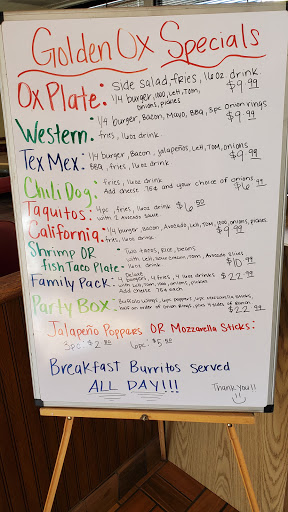 Golden Ox Specials
Ox Plate: side salad, fries, 16oz drink
1/4 burger, 1000, Lett, Tom, onions, pickles $9.99
Western: 1/4 burger, Bacon, Mayo, BBQ, 3pc onion rings
fries, 16oz drink. $9.99
Tex Mex: 1/4 burger, Bacon, jalapeños, Lett, Tom, onions
BBQ, fries, 16oz drink $9.99
Chili Dog: fries, 16oz drink
Add cheese 75¢ and your choice of onions $6.99
Taquitos: 4pc, fries, 16oz drink $6.50
with 2 Avocado sauce
California: 1/4 burger, Bacon, Avocado, Lett, Tom, 1000, onions, pickles
fries, 16oz drink $9.99
Shrimp OR Two tacos, Rice, beans
Fish Taco Plate- with Lett, Tom, Avocado slices
16oz drink $10.99
Family Pack: 4 Deluxe burgers, 4 fries, 4 16oz drinks $22.99
with Lett, Tom, 1000, onions, pickles
Add cheese 75¢ each
Party Box- Buffalo wings, poppers, mozzarella sticks,
half an order of onion Rings, plus 4 sides of Ranch $22.99
Jalapeño Poppers OR Mozzarella Sticks:
3pc: $2.50 6pc: $5.50
Breakfast Burritos served
ALL DAY!!!
Thank you!!